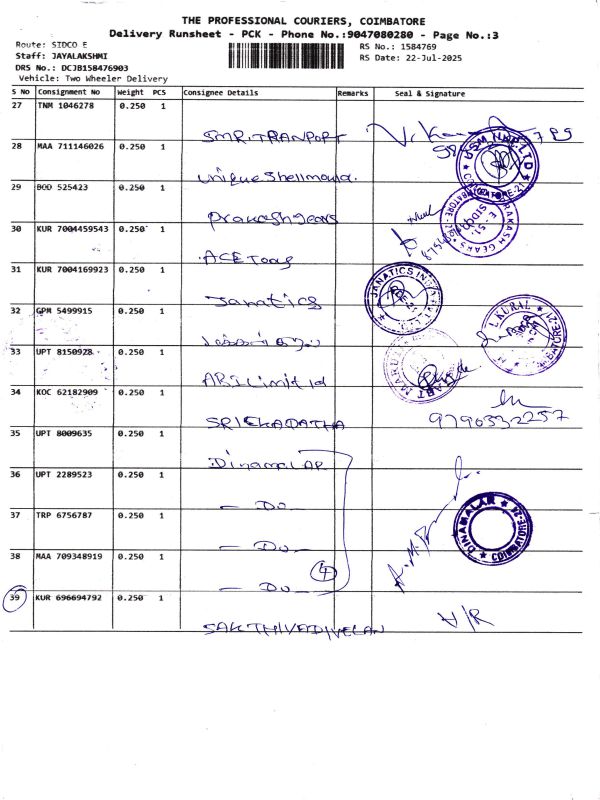 THE PROFESSIONAL COURIERS, COIMBATORE
Delivery Runsheet - PCK - Phone No.:9047080280 - Page No.:3
Route: SIDCO E
RS No.: 1584769
Staff: JAYALAKSHMI
RS Date: 22-Jul-2025
DRS No.: DCJB158476903
Vehicle: Two Wheeler Delivery
S No Consignment No Weight PCS Consignee Details Remarks Seal & Signature
27 TNM 1046278 0.250 1
SMR.TRANPORT
28 MAA 711146026 0.250 1
Unique Shellmould.
29 BOD 525423 0.250 1
Prakash gears
30 KUR 7004459543 0.250 1
ACE Tools
31 KUR 7004169923 0.250 1
Janatics
32 GPM 5499915 0.250 1
33 UPT 8150928 0.250 1
34 KOC 62182909 0.250 1
9790332257
35 UPT 8009635 0.250 1
DinamalAR
36 UPT 2289523 0.250 1
- Do -
37 TRP 6756787 0.250 1
- Do -
38 MAA 709348919 0.250 1
- Do -
4
39 KUR 696694792 0.250 1
SAKTHIVADIVELAN
DINAMALAR
COIMBATORE